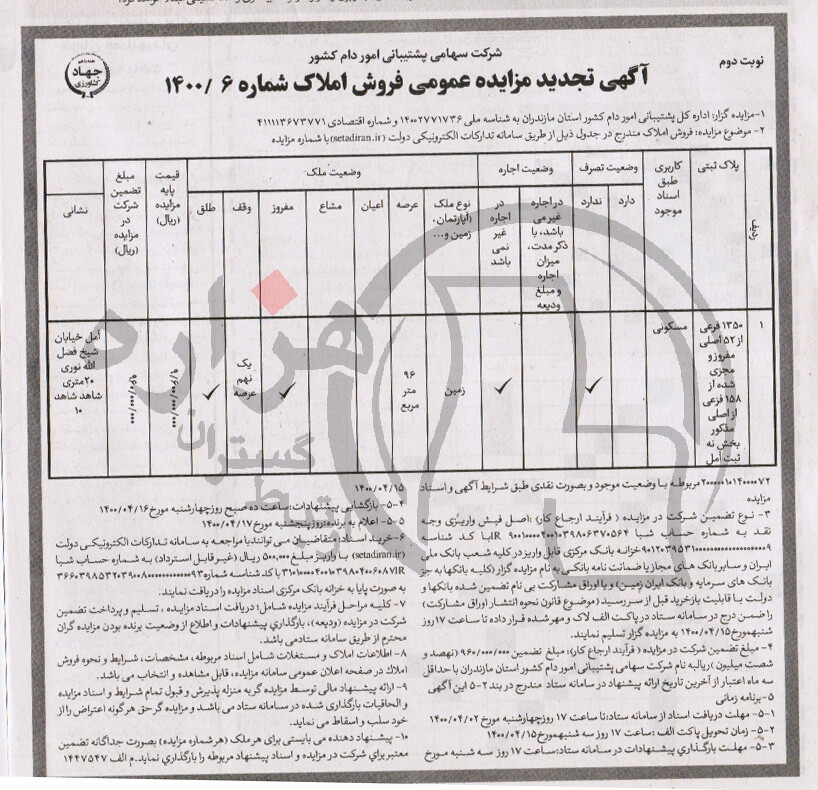 نوبت دوم
شرکت سهامی پشتیبانی امور دام کشور
آگهی تجدید مزایده عمومی فروش املاک شماره ۶ /۱۴۰۰
جهاد
کشاورزی
۱-مزایده گزار: اداره کل پشتیبانی امور دام کشور استان مازندران به شناسه ملی ۱۴۰۰۲۷۷۱۷۳۶ و شماره اقتصادی ۴۱۱۱۱۳۶۷۳۷۷۱
۲- موضوع مزایده: فروش املاک مندرج در جدول ذیل از طریق سامانه تدارکات الکترونیکی دولت (setadiran.ir) با شماره مزایده
ردیف
پلاک ثبتی
کاربری طبق اسناد موجود
وضعیت تصرف
دارد
ندارد
وضعیت اجاره
در اجاره غیر می باشد، با ذکر مدت، میزان اجاره و مبلغ ودیعه
در اجاره غیر نمی باشد
وضعیت ملک
نوع ملک (آپارتمان، زمین و...
عرصه
اعیان
مشاع
مفروز
وقف
طلق
قیمت پایه مزایده (ریال)
مبلغ تضمین شرکت در مزایده (ریال)
نشانی
۱
۱۳۵۰ فرعی از ۵۲ اصلی مفروز و مجزی شده از ۱۵۸ فرعی از اصلی مذکور بخش نه ثبت آمل
مسکونی
✓
✓
زمین
۹۶ متر مربع
✓
یک نهم عرصه
✓
۹/۶۰۰/۰۰۰/۰۰۰
۹۶۰/۰۰۰/۰۰۰
آمل خیابان شیخ فضل الله نوری ۲۰متری شاهد شاهد ۱۰
۲۰۰۰۰۰۱۰۱۴۰۰۰۰۷۲ مربوطه با وضعیت موجود و بصورت نقدی طبق شرایط آگهی و اسناد
مزایده
۳- نوع تضمین شرکت در مزایده ( فرآیند ارجاع کار) :اصل فیش واریزی وجه
نقد به شماره حساب شبا
خزانه بانک مرکزی قابل واریز در کلیه شعب بانک ملی
ایران و سایر بانک های مجاز یا ضمانت نامه بانکی به نام مزایده گزار (کلیه بانکها به جز
بانک های سرمایه و بانک ایران زمین) و یا اوراق مشارکت بی نام تضمین شده بانکها و
دولت با قابلیت بازخرید قبل از سررسید (موضوع قانون نحوه انتشار اوراق مشارکت)
را ضمن درج در سامانه ستاد در پاکت الف لاک و مهر شده قرار داده تا ساعت ۱۷ روز
شنبهمورخ ۱۴۰۰/۰۴/۱۵ به مزایده گزار تسلیم نمایند.
۴- مبلغ تضمین شرکت در مزایده ( فرآیند ارجاع کار): مبلغ تضمین ۹۶۰/۰۰۰/۰۰۰ (نهصد و
شصت میلیون) ریالبه نام شرکت سهامی پشتیبانی امور دام کشور استان مازندران با حداقل
سه ماه اعتبار از آخرین تاریخ ارائه پیشنهاد در سامانه ستاد مندرج در بند ۲-۵ این آگهی
۵- برنامه زمانی
۱-۵- مهلت دریافت اسناد از سامانه ستاد:تا ساعت ۱۷ روزچهارشنبه مورخ ۱۴۰۰/۰۴/۰۲
۲-۵- زمان تحویل پاکت الف :ساعت ۱۷ روز سه شنبهمورخ ۱۴۰۰/۰۴/۱۵
۳-۵- مهلت بارگذاری پیشنهادات در سامانه ستاد: ساعت ۱۷ روز سه شنبه مورخ
۱۴۰۰/۰۴/۱۵
۴-۵- بازگشایی پیشنهادات: ساعت ده صبح روزچهارشنبه مورخ ۱۴۰۰/۰۴/۱۶
۵-۵- اعلام به برنده: روز پنجشنبه مورخ ۱۴۰۰/۰۴/۱۷
۶-خرید اسناد: متقاضیان می توانندبا مراجعه به سامانه تدارکات الکترونیکی دولت
(setadiran.ir) با واریز مبلغ ۵۰۰,۰۰۰ ریال (غیر قابل استرداد) به شماره حساب شبا
با کد شناسه شماره
به صورت پایا به خزانه بانک مرکزی اسناد مزایده را دریافت نمایند.
۷- کلیه مراحل فرآیند مزایده شامل: دریافت اسناد مزایده ، تسلیم و پرداخت تضمین
شرکت در مزایده (ودیعه)، بارگذاری پیشنهادات و اطلاع از وضعیت برنده بودن مزایده گران
محترم از طریق سامانه ستادمی باشد.
۸- اطلاعات املاک و مستغلات شامل اسناد مربوطه، مشخصات ، شرایط و نحوه فروش
املاک در صفحه اعلان عمومی سامانه مزایده، قابل مشاهده و انتخاب می باشد.
۹- ارائه پیشنهاد مالی توسط مزایده گربه منزله پذیرش و قبول تمام شرایط و اسناد مزایده
و الحاقیات بارگذاری شده در سامانه ستاد می باشد و مزایده گر حق هر گونه اعتراض را از
خود سلب و اسقاط می نماید.
۱۰- پیشنهاد دهنده می بایستی برای هر ملک (هر شماره مزایده) بصورت جداگانه تضمین
معتبر برای شرکت در مزایده و اسناد پیشنهاد مربوطه را بارگذاری نماید.م الف ۱۴۴۷۵۴۷
هزاره
گستران